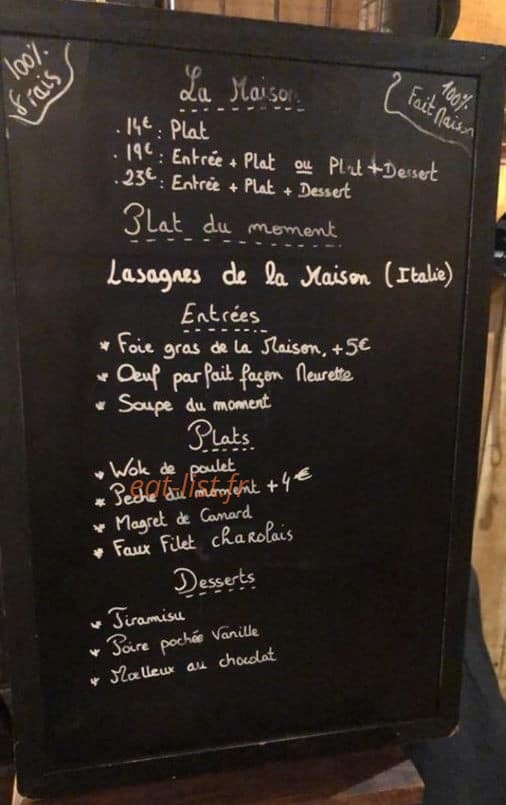 100%
Frais
100%
Fait Maison
La Maison
. 14€ : Plat
. 19€ : Entrée + Plat ou Plat + Dessert
. 23€ : Entrée + Plat + Dessert
Plat du moment
Lasagnes de la Maison (Italie)
Entrées
* Foie gras de la Maison, +5€
* Oeuf parfait façon Meurette
* Soupe du moment
Plats
* Wok de poulet
* Pêche du moment +4€
eat-list.fr
* Magret de Canard
* Faux Filet charolais
Desserts
* Tiramisu
* Poire pochée Vanille
* Moelleux au chocolat